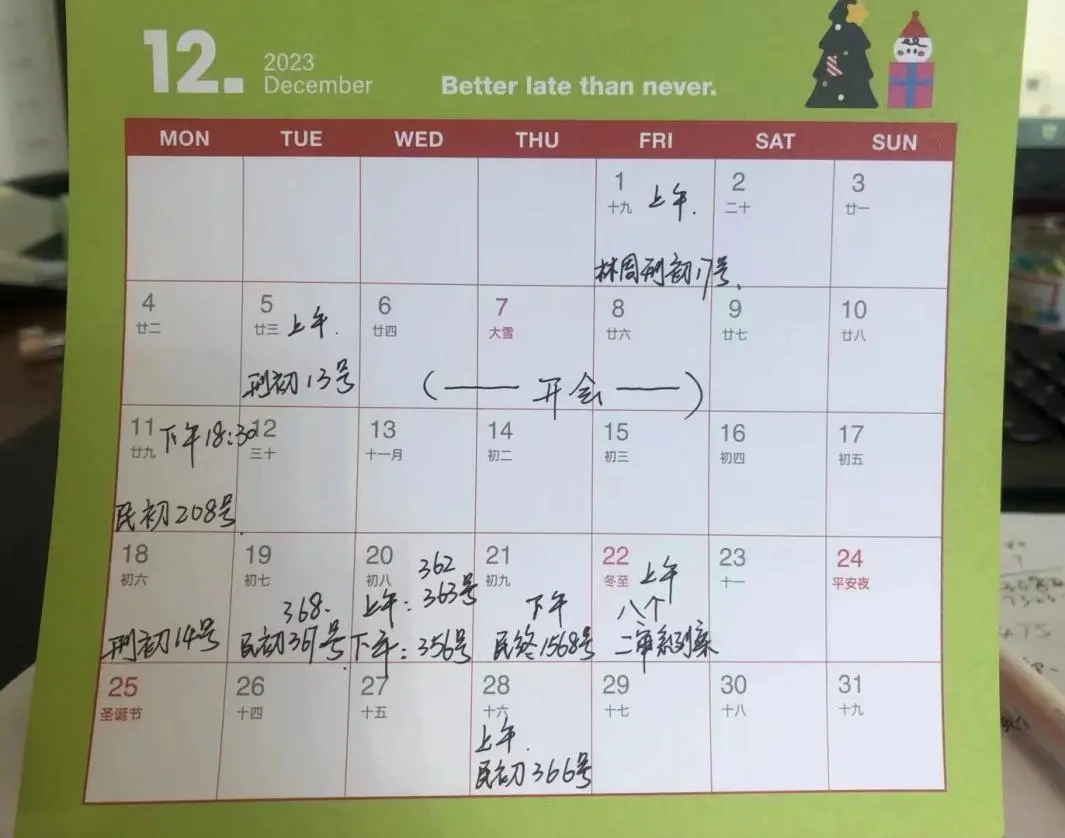 12.
2023
December
Better late than never.
MON TUE WED THU FRI SAT SUN
1 2 3
十九 上午. 二十 廿一
林周刑初17号.
4 5 6 7 8 9 10
廿二 廿三 上午. 廿四 大雪 廿六 廿七 廿八
刑初13号 (—— 开会 ——)
11 下午18:30 12 13 14 15 16 17
廿九 三十 十一月 初二 初三 初四 初五
民初208号.
18 19 20 21 22 23 24
初六 初七 初八 初九 冬至 十一 平安夜
362
上午: 363号
下午: 356号
368.
民初367号
刑初14号
下午
民终1568号
上午
八个
二审系列案
25 26 27 28 29 30 31
圣诞节 十四 十五 十六 十七 十八 十九
上午.
民初366号